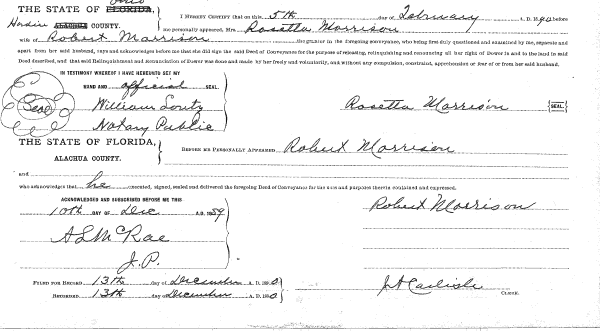 Ohio
THE STATE OF FLORIDA,
Hardin ALACHUA COUNTY.
I HEREBY CERTIFY that on this 5th day of February A. D. 1890 before
me personally appeared Mrs Rosetta Morrison
wife of Robert Morrison the grantor in the foregoing conveyance, who being first duly questioned and examined by me, separate and
apart from her said husband, says and acknowledges before me that she did sign the said Deed of Conveyance for the purpose of releasing, relinquishing and renouncing all her right of Dower in and to the land in said
Deed described, and that said Relinquishment and Renunciation of Dower was done and made by her freely and voluntarily, and without any compulsion, constraint, apprehension or fear of or from her said husband.
IN TESTIMONY WHEREOF I HAVE HEREUNTO SET MY
HAND AND official SEAL.
Seal
William
Notary Public
Rosetta Morrison {SEAL}
THE STATE OF FLORIDA,
ALACHUA COUNTY.
BEFORE ME PERSONALLY APPEARED Robert Morrison
and
who acknowledges that he executed, signed, sealed and delivered the foregoing Deed of Conveyance for the uses and purposes therein contained and expressed.
ACKNOWLEDGED AND SUBSCRIBED BEFORE ME THIS
10th DAY OF Dec A.D. 1889
A L McRae
J.P.
Robert Morrison
FILED FOR RECORD 13th day of December A. D. 1890
RECORDED 13th day of December A. D. 1890
CLERK.